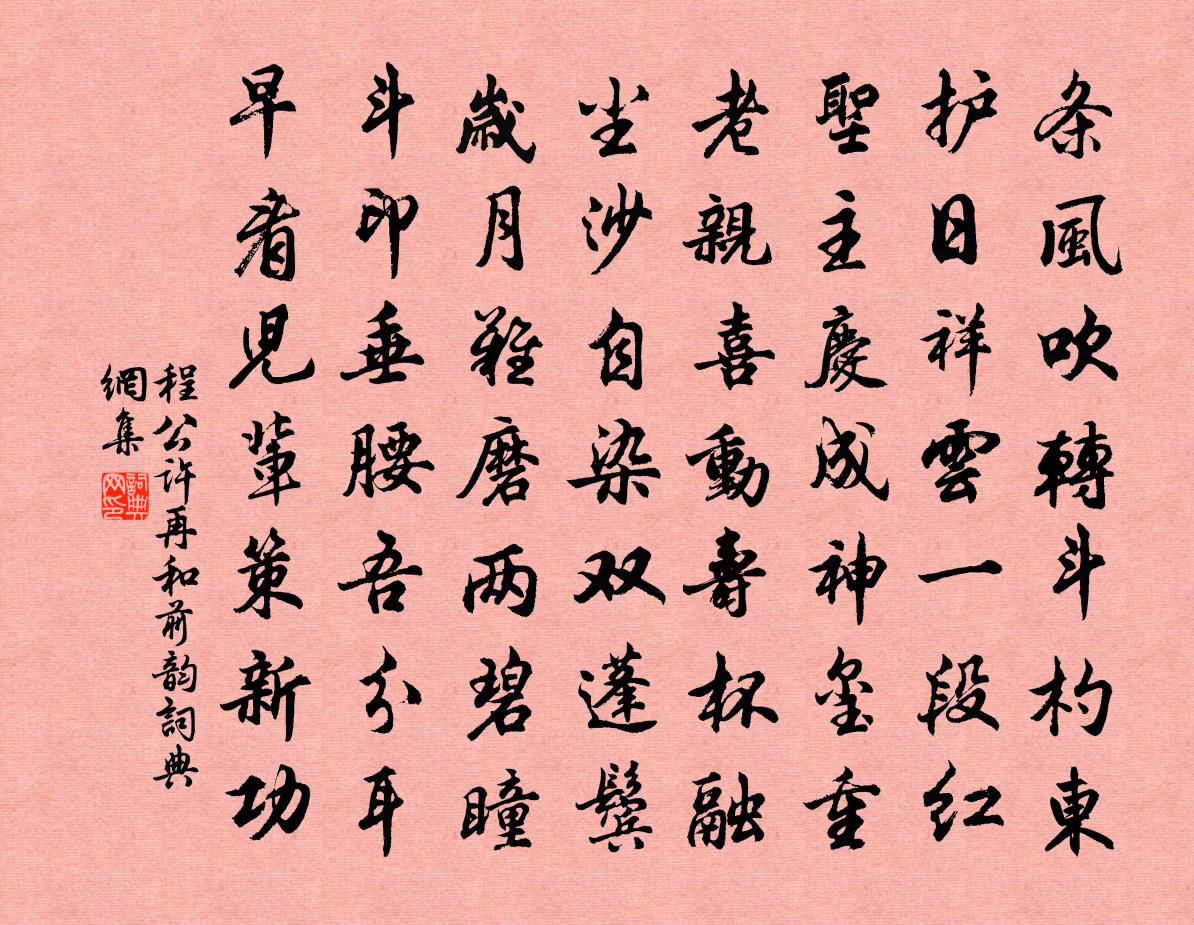 条風吹轉斗杓東
护日祥雲一段红
聖主慶成神玺重
老親喜動壽杯融
尘沙自染双蓬鬓
歲月難磨两碧瞳
斗印垂腰吾分耳
早看兒輩策新功
程公许再和前韵詞典
網集
詞典
网印